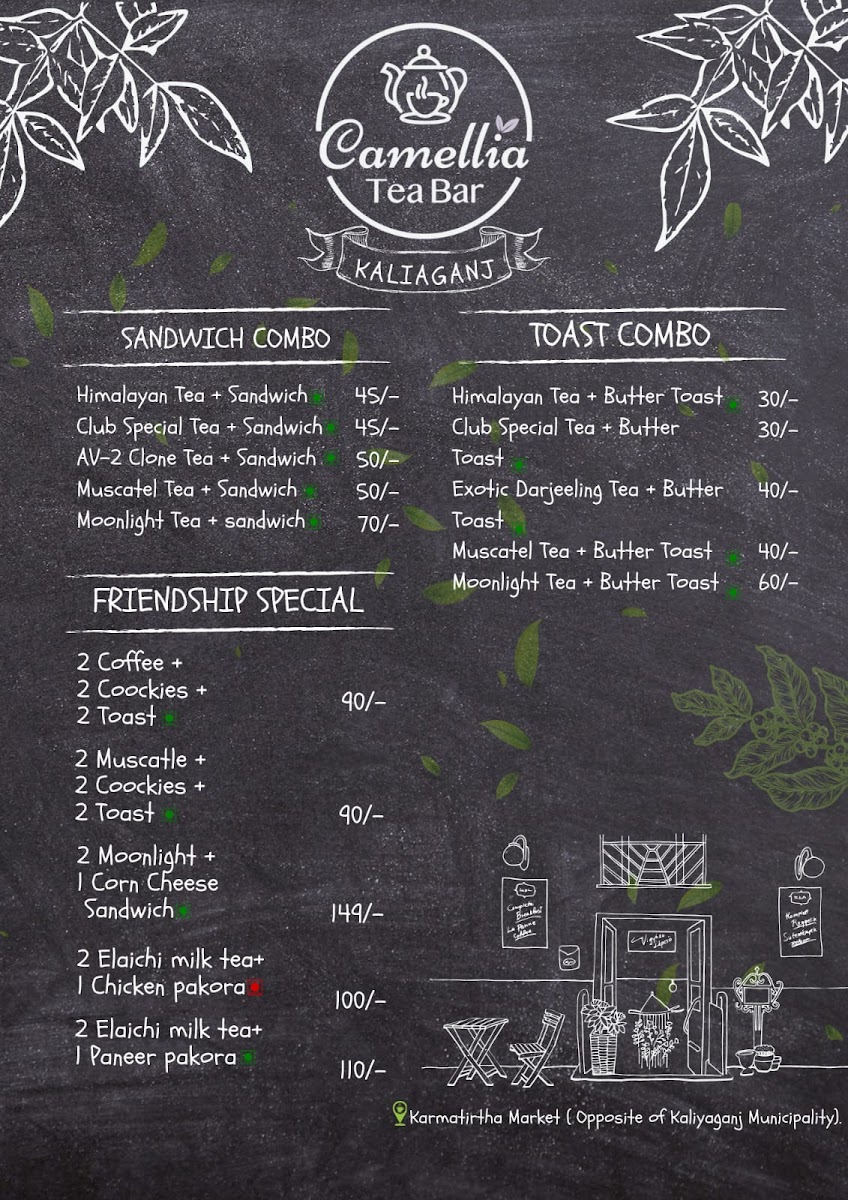 Camellia
Tea Bar
KALIAGANJ
SANDWICH COMBO
Himalayan Tea + Sandwich 45/-
Club Special Tea + Sandwich 45/-
AV-2 Clone Tea + Sandwich 50/-
Muscatel Tea + Sandwich 50/-
Moonlight Tea + sandwich 70/-
TOAST COMBO
Himalayan Tea + Butter Toast 30/-
Club Special Tea + Butter 30/-
Toast
Exotic Darjeeling Tea + Butter 40/-
Toast
Muscatel Tea + Butter Toast 40/-
Moonlight Tea + Butter Toast 60/-
FRIENDSHIP SPECIAL
2 Coffee +
2 Coockies +
2 Toast 90/-
2 Muscatle +
2 Coockies +
2 Toast 90/-
2 Moonlight +
1 Corn Cheese
Sandwich 149/-
2 Elaichi milk tea+
1 Chicken pakora 100/-
2 Elaichi milk tea+
1 Paneer pakora 110/-
Complete
Breakfast
Karmatirtha Market ( Opposite of Kaliyaganj Municipality).